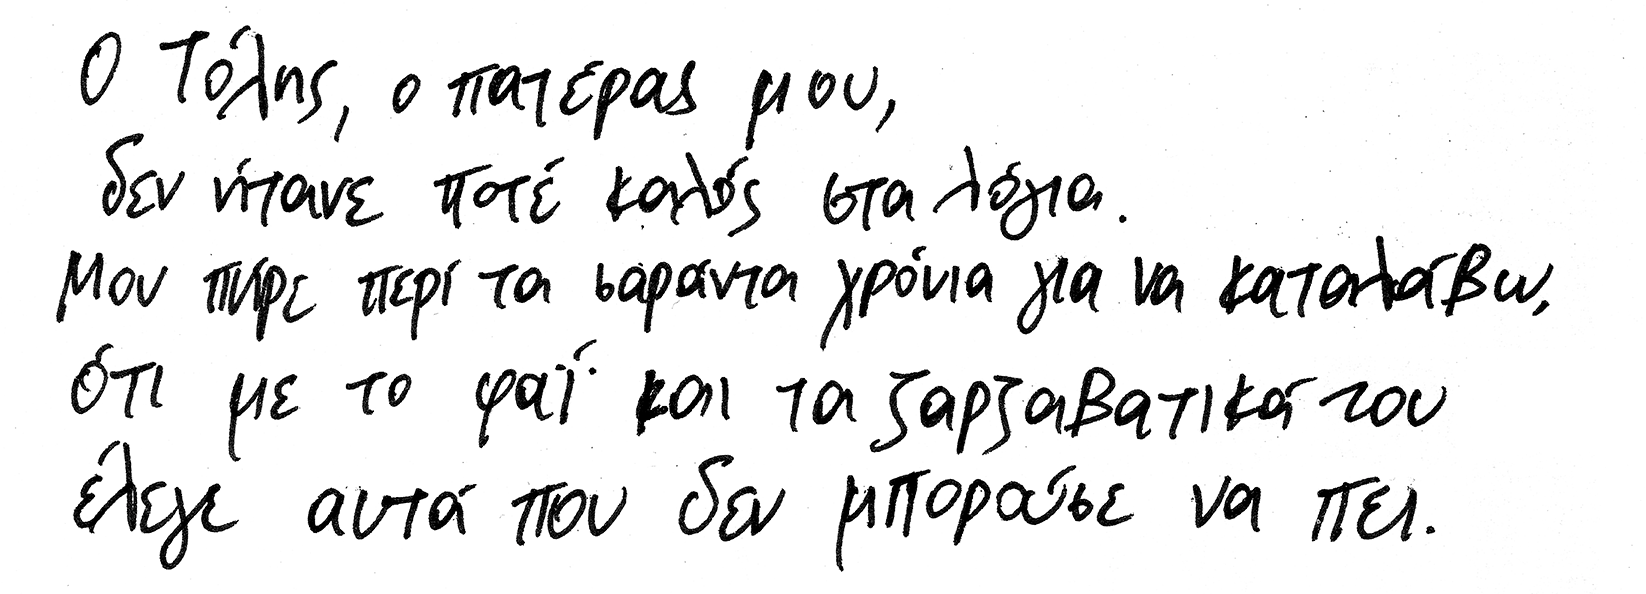 Ο Τόλης, ο πατέρας μου,
δεν ήτανε ποτέ καλός στα λόγια.
Μου πήρε περί τα σαράντα χρόνια για να καταλάβω,
ότι με το φαΐ και τα ζαρζαβατικά του
έλεγε αυτά που δεν μπορούσε να πει.